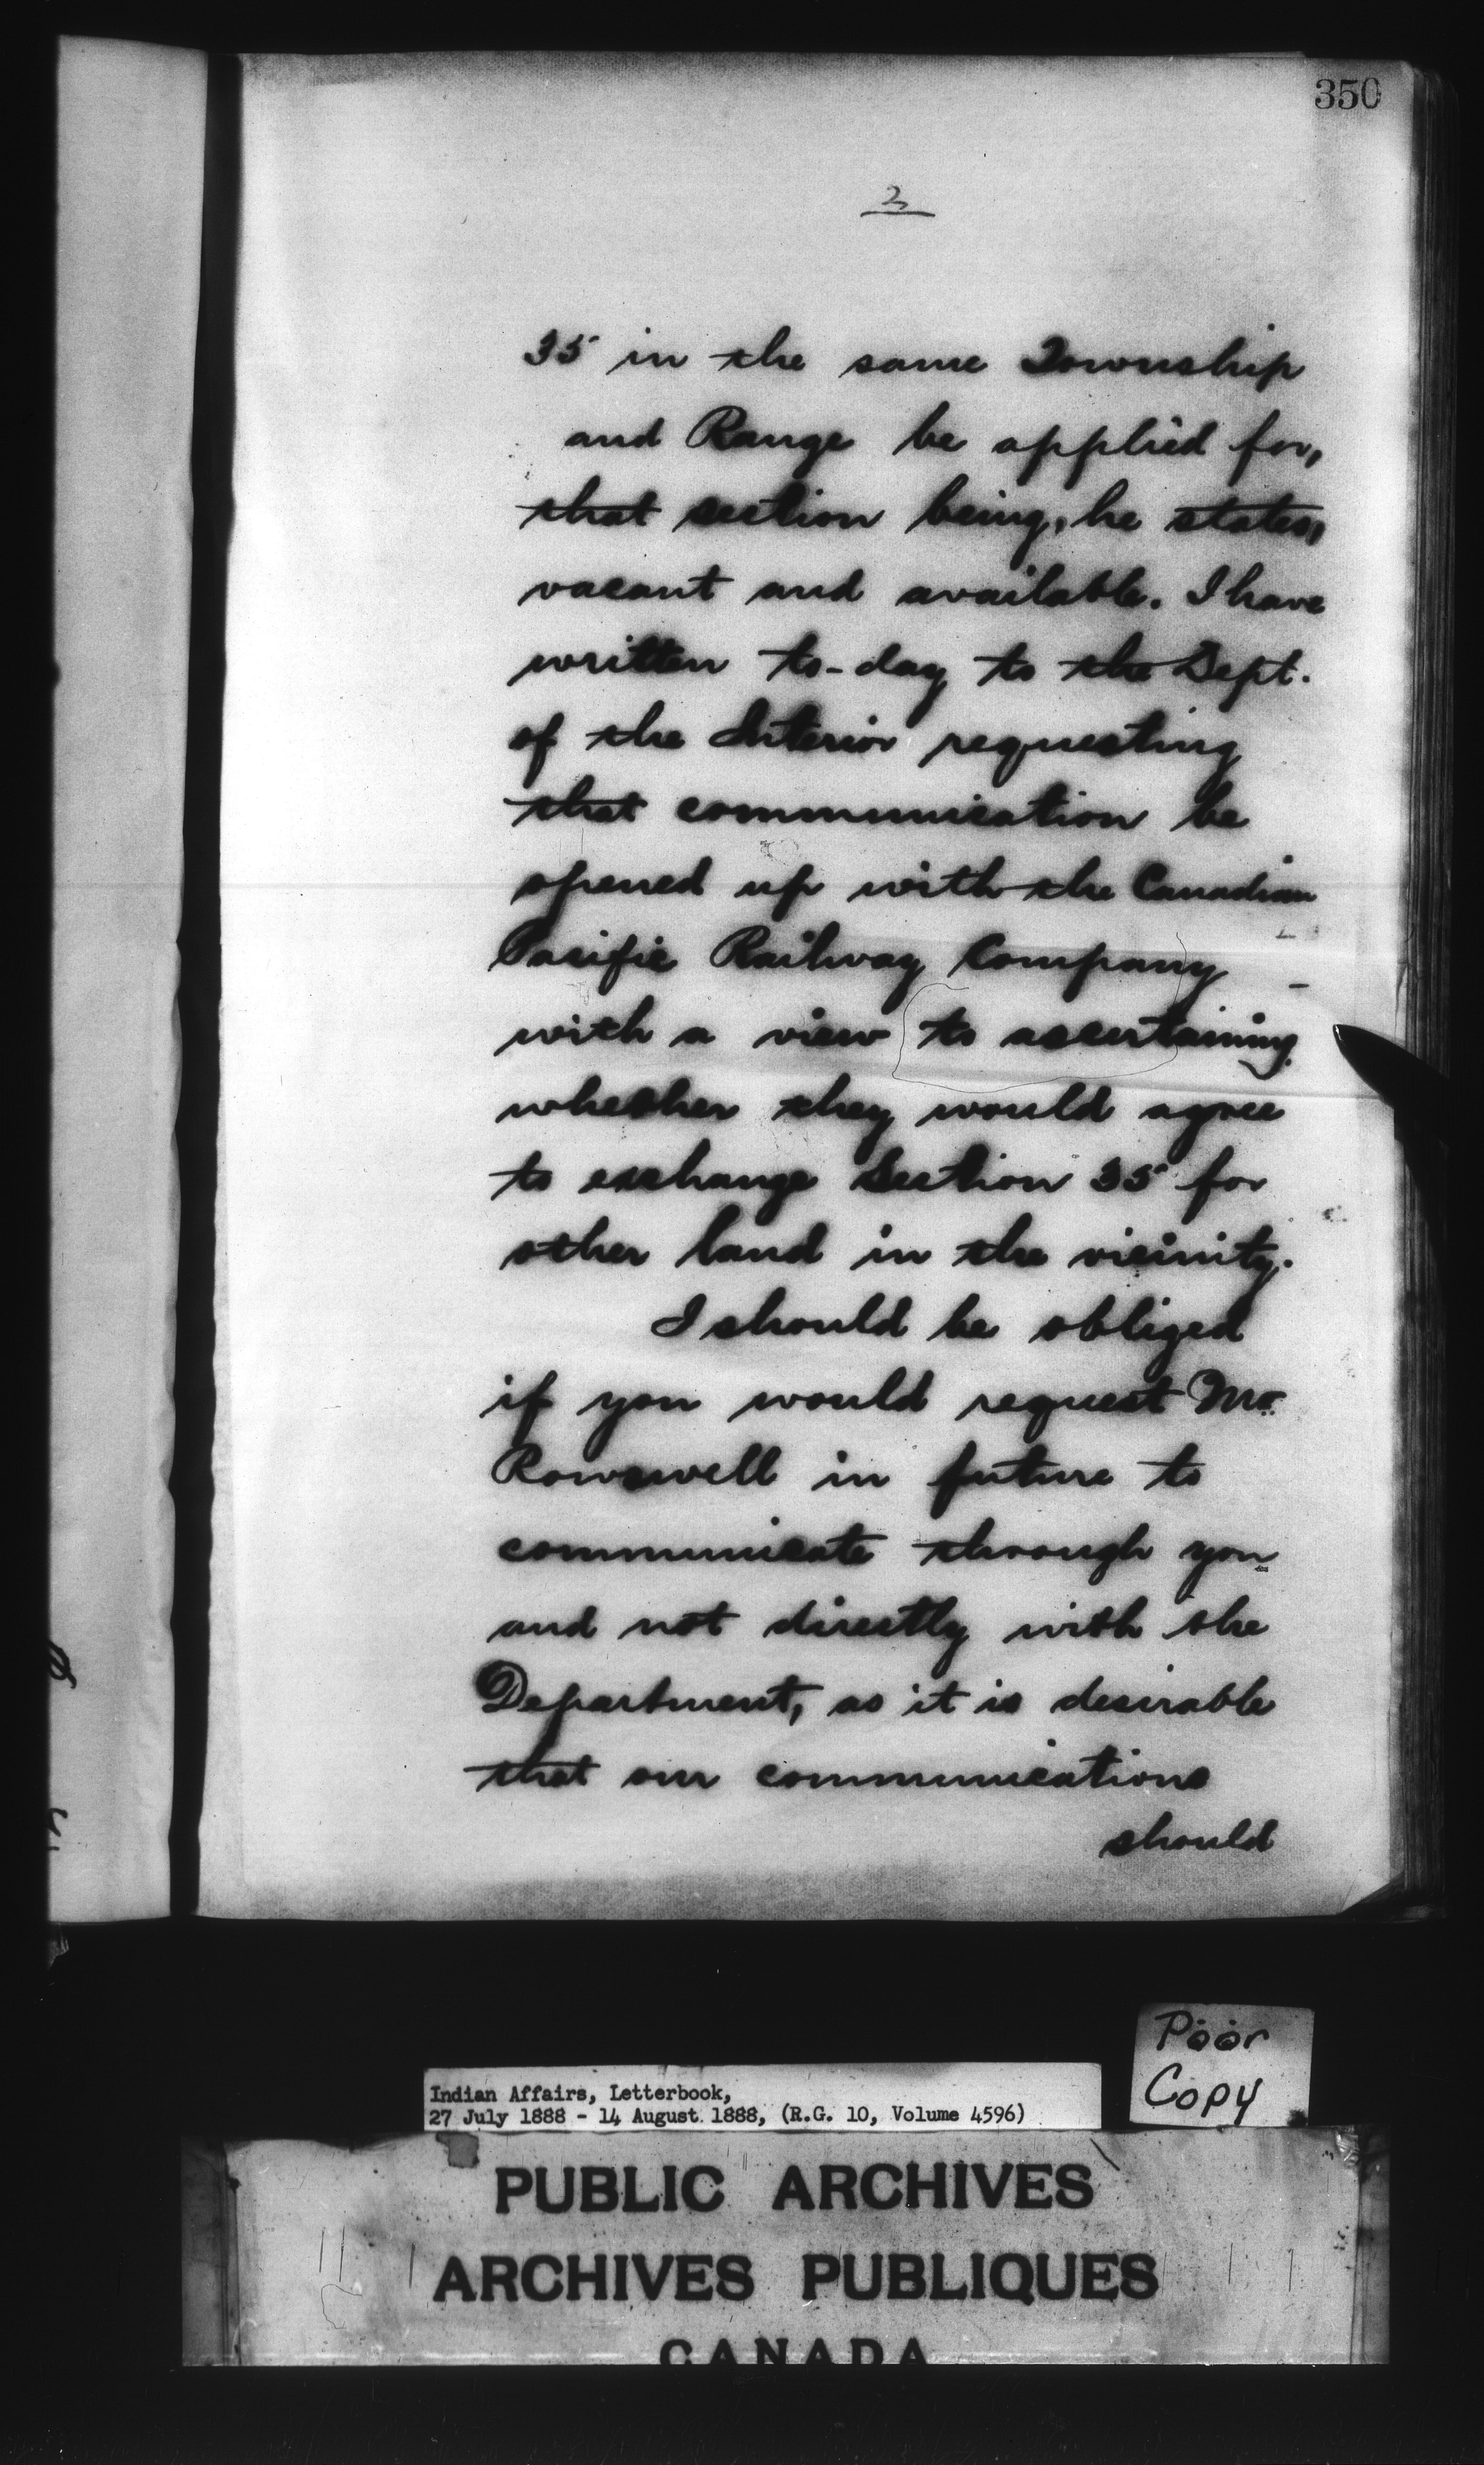 350
2
35 in the same Township
and Range be applied for,
that section being, he states,
vacant and available. I have
written to-day to the Dept.
of the Interior requesting
that communication be
opened up with the Canadian
Pacific Railway Company
with a view to ascertaining
whether they would agree
to exchange Section 35 for
other land in the vicinity.
I should be obliged
if you would request Mr.
Rowswell in future to
communicate through you
and not directly with the
Department, as it is desirable
that our communications
should
Poor
Copy
Indian Affairs, Letterbook,
27 July 1888 - 14 August 1888, (R.G. 10, Volume 4596)
PUBLIC ARCHIVES
ARCHIVES PUBLIQUES
CANADA